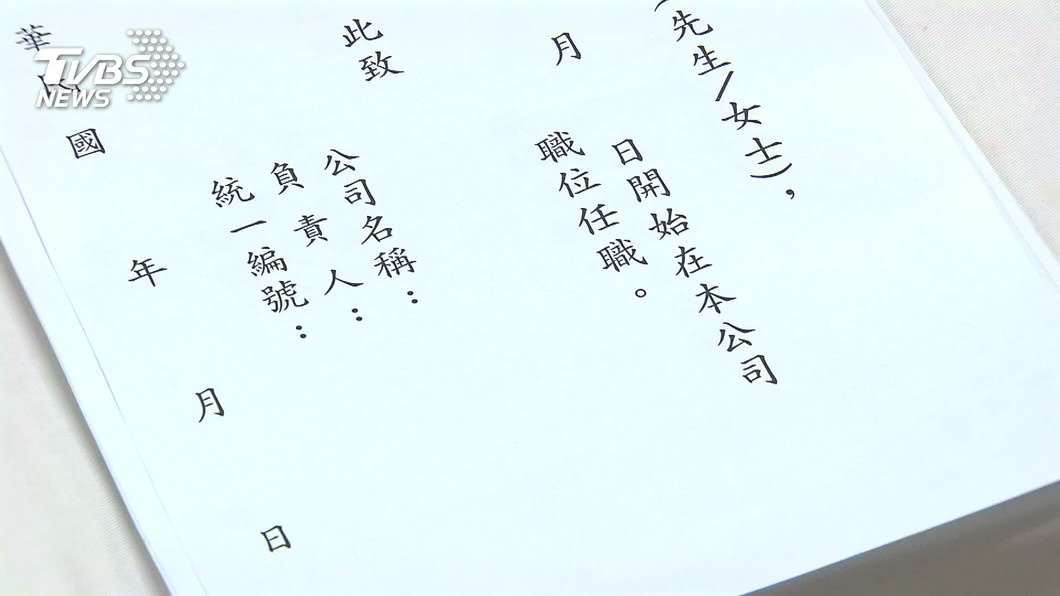 (先生/女士)，
月 日開始在本公司
職位任職。
此致
公司名稱：
負責人：
統一編號：
華民國 年 月 日
TVBS
NEWS